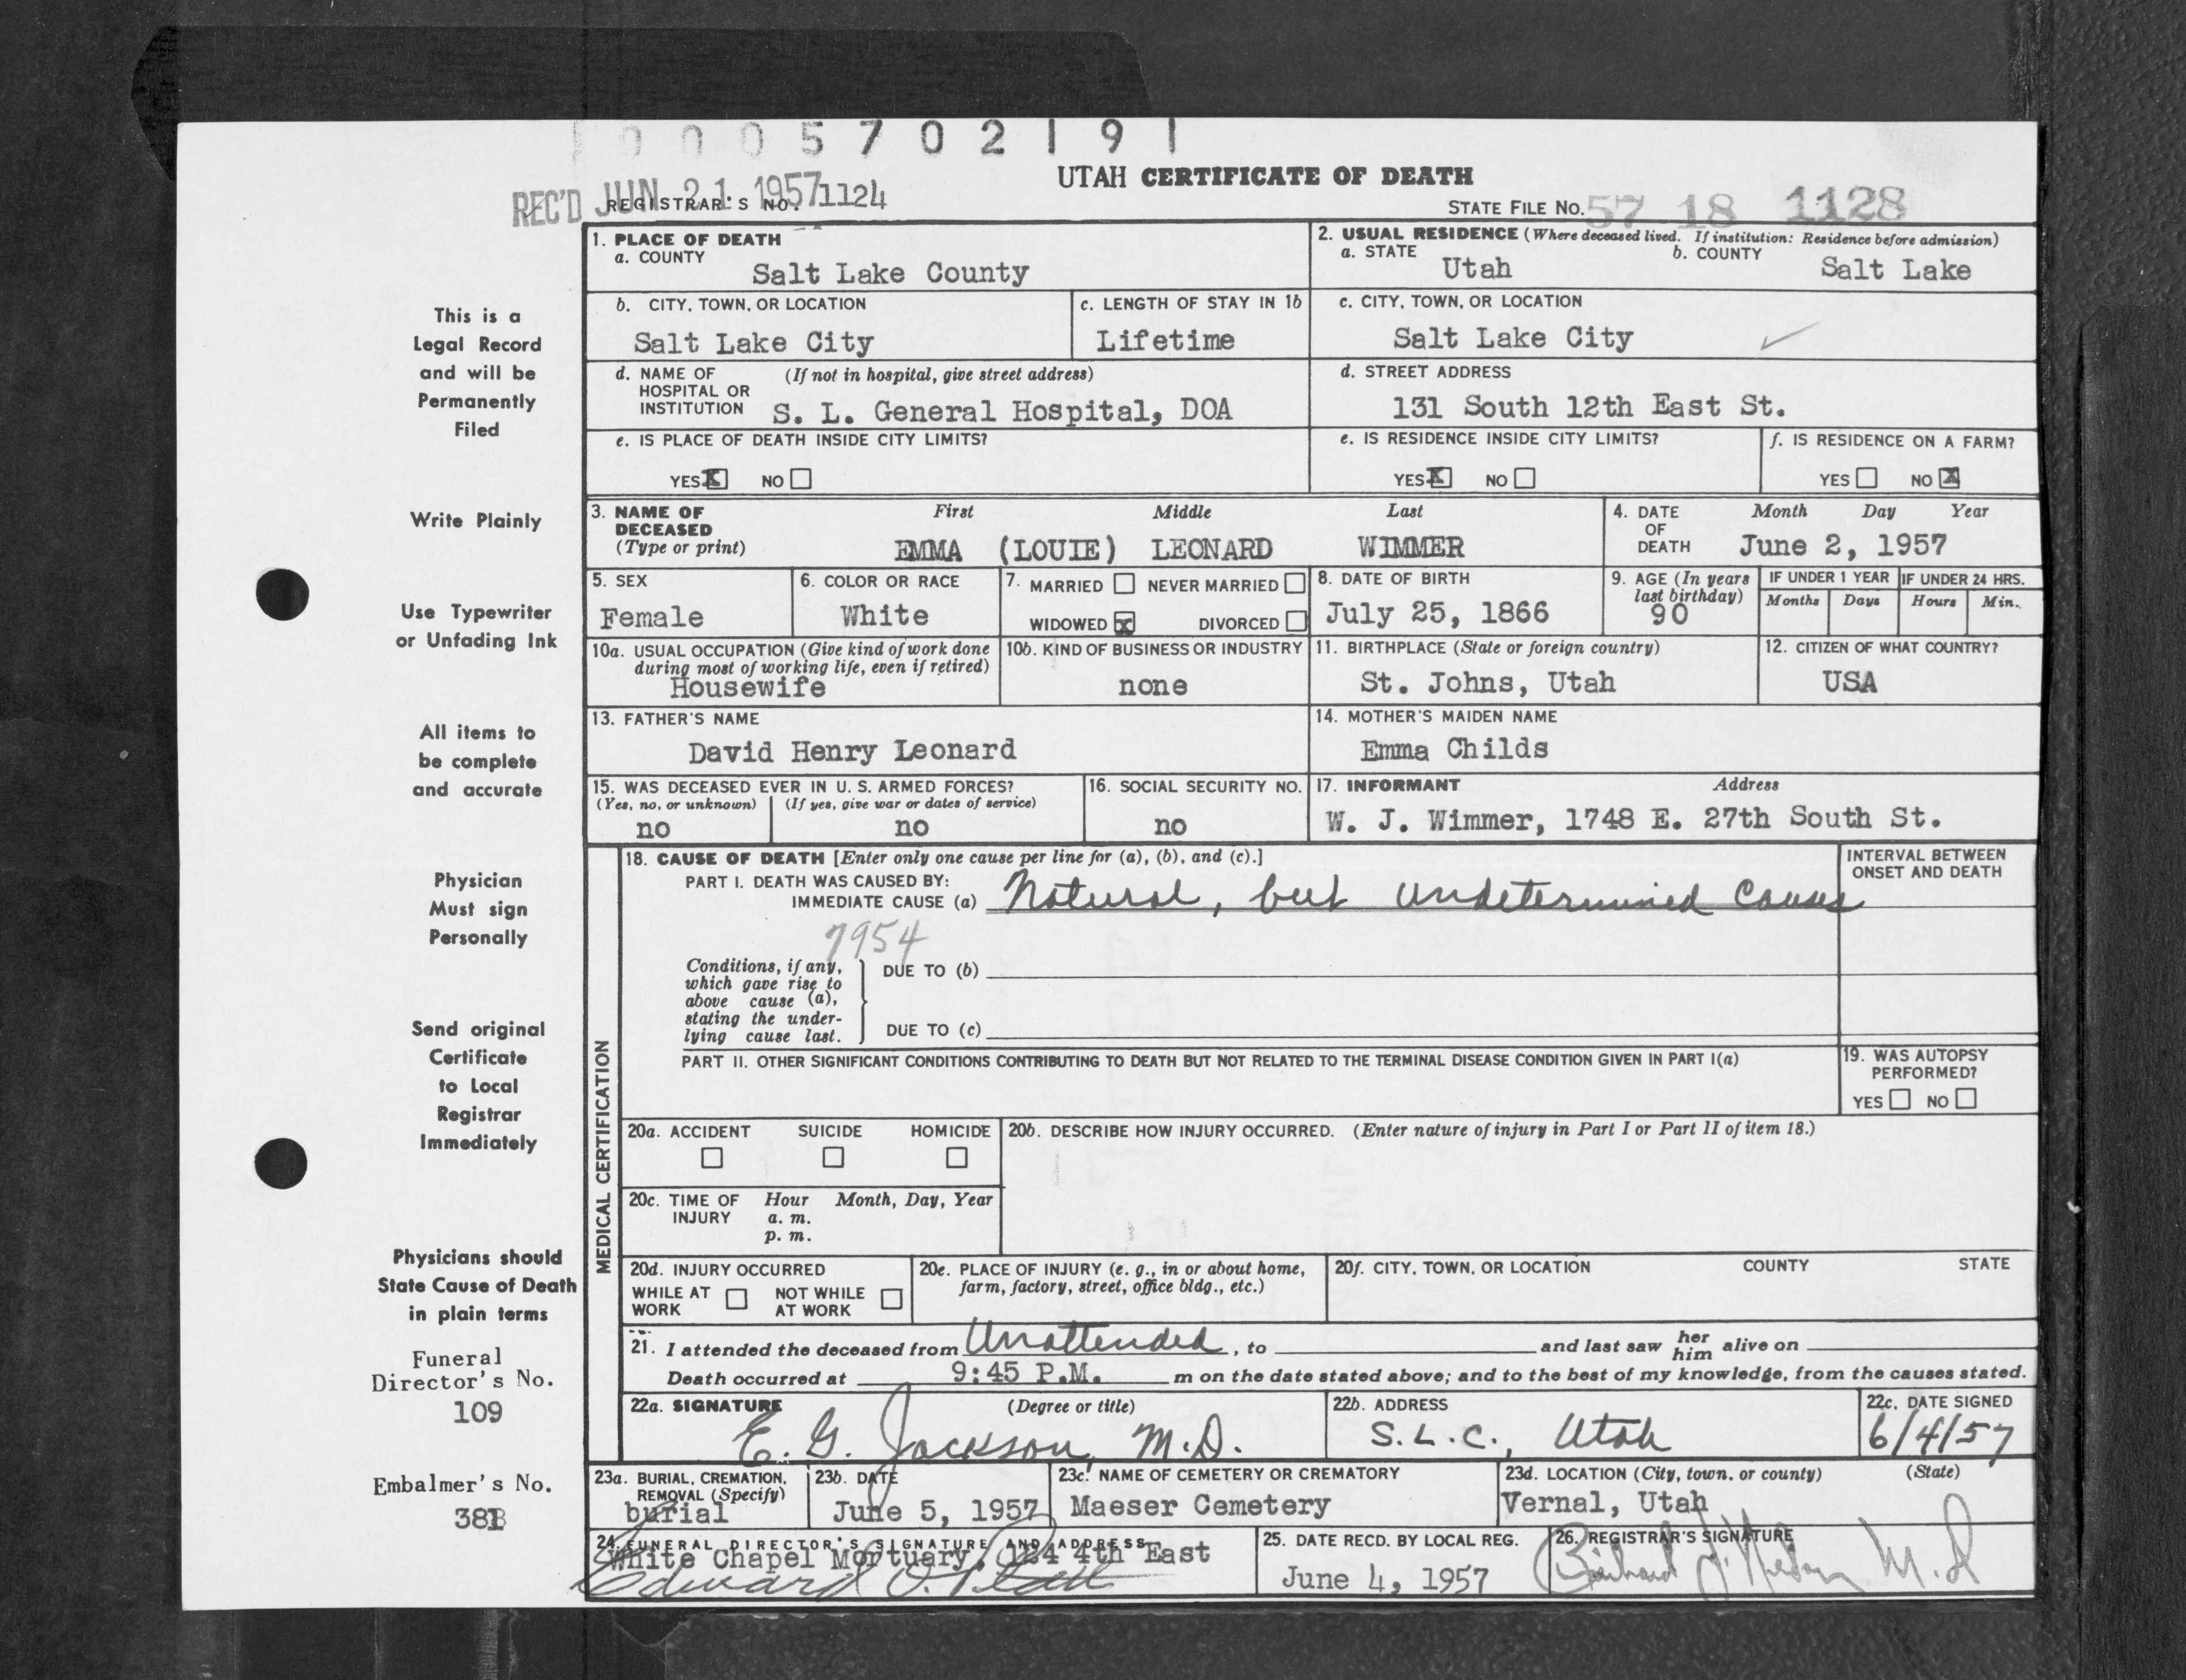 0005702191
UTAH CERTIFICATE OF DEATH
REC'D JUN 21 1957 REGISTRAR'S NO. 1124
STATE FILE NO. 57 18 1128
This is a
Legal Record
and will be
Permanently
Filed
Write Plainly
Use Typewriter
or Unfading Ink
All items to
be complete
and accurate
Physician
Must sign
Personally
Send original
Certificate
to Local
Registrar
Immediately
Physicians should
State Cause of Death
in plain terms
Funeral
Director's No.
109
Embalmer's No.
1. PLACE OF DEATH
a. COUNTY
Salt Lake County
2. USUAL RESIDENCE (Where deceased lived. If institution: Residence before admission)
a. STATE b. COUNTY
Utah Salt Lake
b. CITY, TOWN, OR LOCATION
Salt Lake City
c. LENGTH OF STAY IN 1b
Lifetime
c. CITY, TOWN, OR LOCATION
Salt Lake City
d. NAME OF (If not in hospital, give street address)
HOSPITAL OR
INSTITUTION S. L. General Hospital, DOA
d. STREET ADDRESS
131 South 12th East St.
e. IS PLACE OF DEATH INSIDE CITY LIMITS?
YES X NO
e. IS RESIDENCE INSIDE CITY LIMITS?
YES X NO
f. IS RESIDENCE ON A FARM?
YES NO X
3. NAME OF First Middle Last
DECEASED
(Type or print) EMMA (LOUIE) LEONARD WIMMER
4. DATE Month Day Year
OF
DEATH June 2, 1957
5. SEX
Female
6. COLOR OR RACE
White
7. MARRIED NEVER MARRIED
WIDOWED X DIVORCED
8. DATE OF BIRTH
July 25, 1866
9. AGE (In years
last birthday)
90
IF UNDER 1 YEAR IF UNDER 24 HRS.
Months Days Hours Min.
10a. USUAL OCCUPATION (Give kind of work done
during most of working life, even if retired)
Housewife
10b. KIND OF BUSINESS OR INDUSTRY
none
11. BIRTHPLACE (State or foreign country)
St. Johns, Utah
12. CITIZEN OF WHAT COUNTRY?
USA
13. FATHER'S NAME
David Henry Leonard
14. MOTHER'S MAIDEN NAME
Emma Childs
15. WAS DECEASED EVER IN U. S. ARMED FORCES?
(Yes, no, or unknown) (If yes, give war or dates of service)
no no
16. SOCIAL SECURITY NO.
no
17. INFORMANT Address
W. J. Wimmer, 1748 E. 27th South St.
MEDICAL CERTIFICATION
18. CAUSE OF DEATH [Enter only one cause per line for (a), (b), and (c).]
INTERVAL BETWEEN
ONSET AND DEATH
PART I. DEATH WAS CAUSED BY:
IMMEDIATE CAUSE (a) Natural, but undetermined cause
7954
Conditions, if any,
which gave rise to
above cause (a),
stating the under-
lying cause last.
DUE TO (b)
DUE TO (c)
PART II. OTHER SIGNIFICANT CONDITIONS CONTRIBUTING TO DEATH BUT NOT RELATED TO THE TERMINAL DISEASE CONDITION GIVEN IN PART I(a)
19. WAS AUTOPSY
PERFORMED?
YES NO
20a. ACCIDENT SUICIDE HOMICIDE
20b. DESCRIBE HOW INJURY OCCURRED. (Enter nature of injury in Part I or Part II of item 18.)
20c. TIME OF Hour Month, Day, Year
INJURY a. m.
p. m.
20d. INJURY OCCURRED
WHILE AT NOT WHILE
WORK AT WORK
20e. PLACE OF INJURY (e. g., in or about home,
farm, factory, street, office bldg., etc.)
20f. CITY, TOWN, OR LOCATION COUNTY STATE
21. I attended the deceased from Unattended, to and last saw her him alive on
Death occurred at 9:45 P.M. m on the date stated above; and to the best of my knowledge, from the causes stated.
22a. SIGNATURE (Degree or title)
E. G. Jackson, M.D.
22b. ADDRESS
S.L.C., Utah
22c. DATE SIGNED
6/4/57
23a. BURIAL, CREMATION,
REMOVAL (Specify)
burial
23b. DATE
June 5, 1957
23c. NAME OF CEMETERY OR CREMATORY
Maeser Cemetery
23d. LOCATION (City, town, or county) (State)
Vernal, Utah
24. FUNERAL DIRECTOR'S SIGNATURE AND ADDRESS
White Chapel Mortuary, 124 4th East
Edward O.
25. DATE RECD. BY LOCAL REG.
June 4, 1957
26. REGISTRAR'S SIGNATURE
M.D